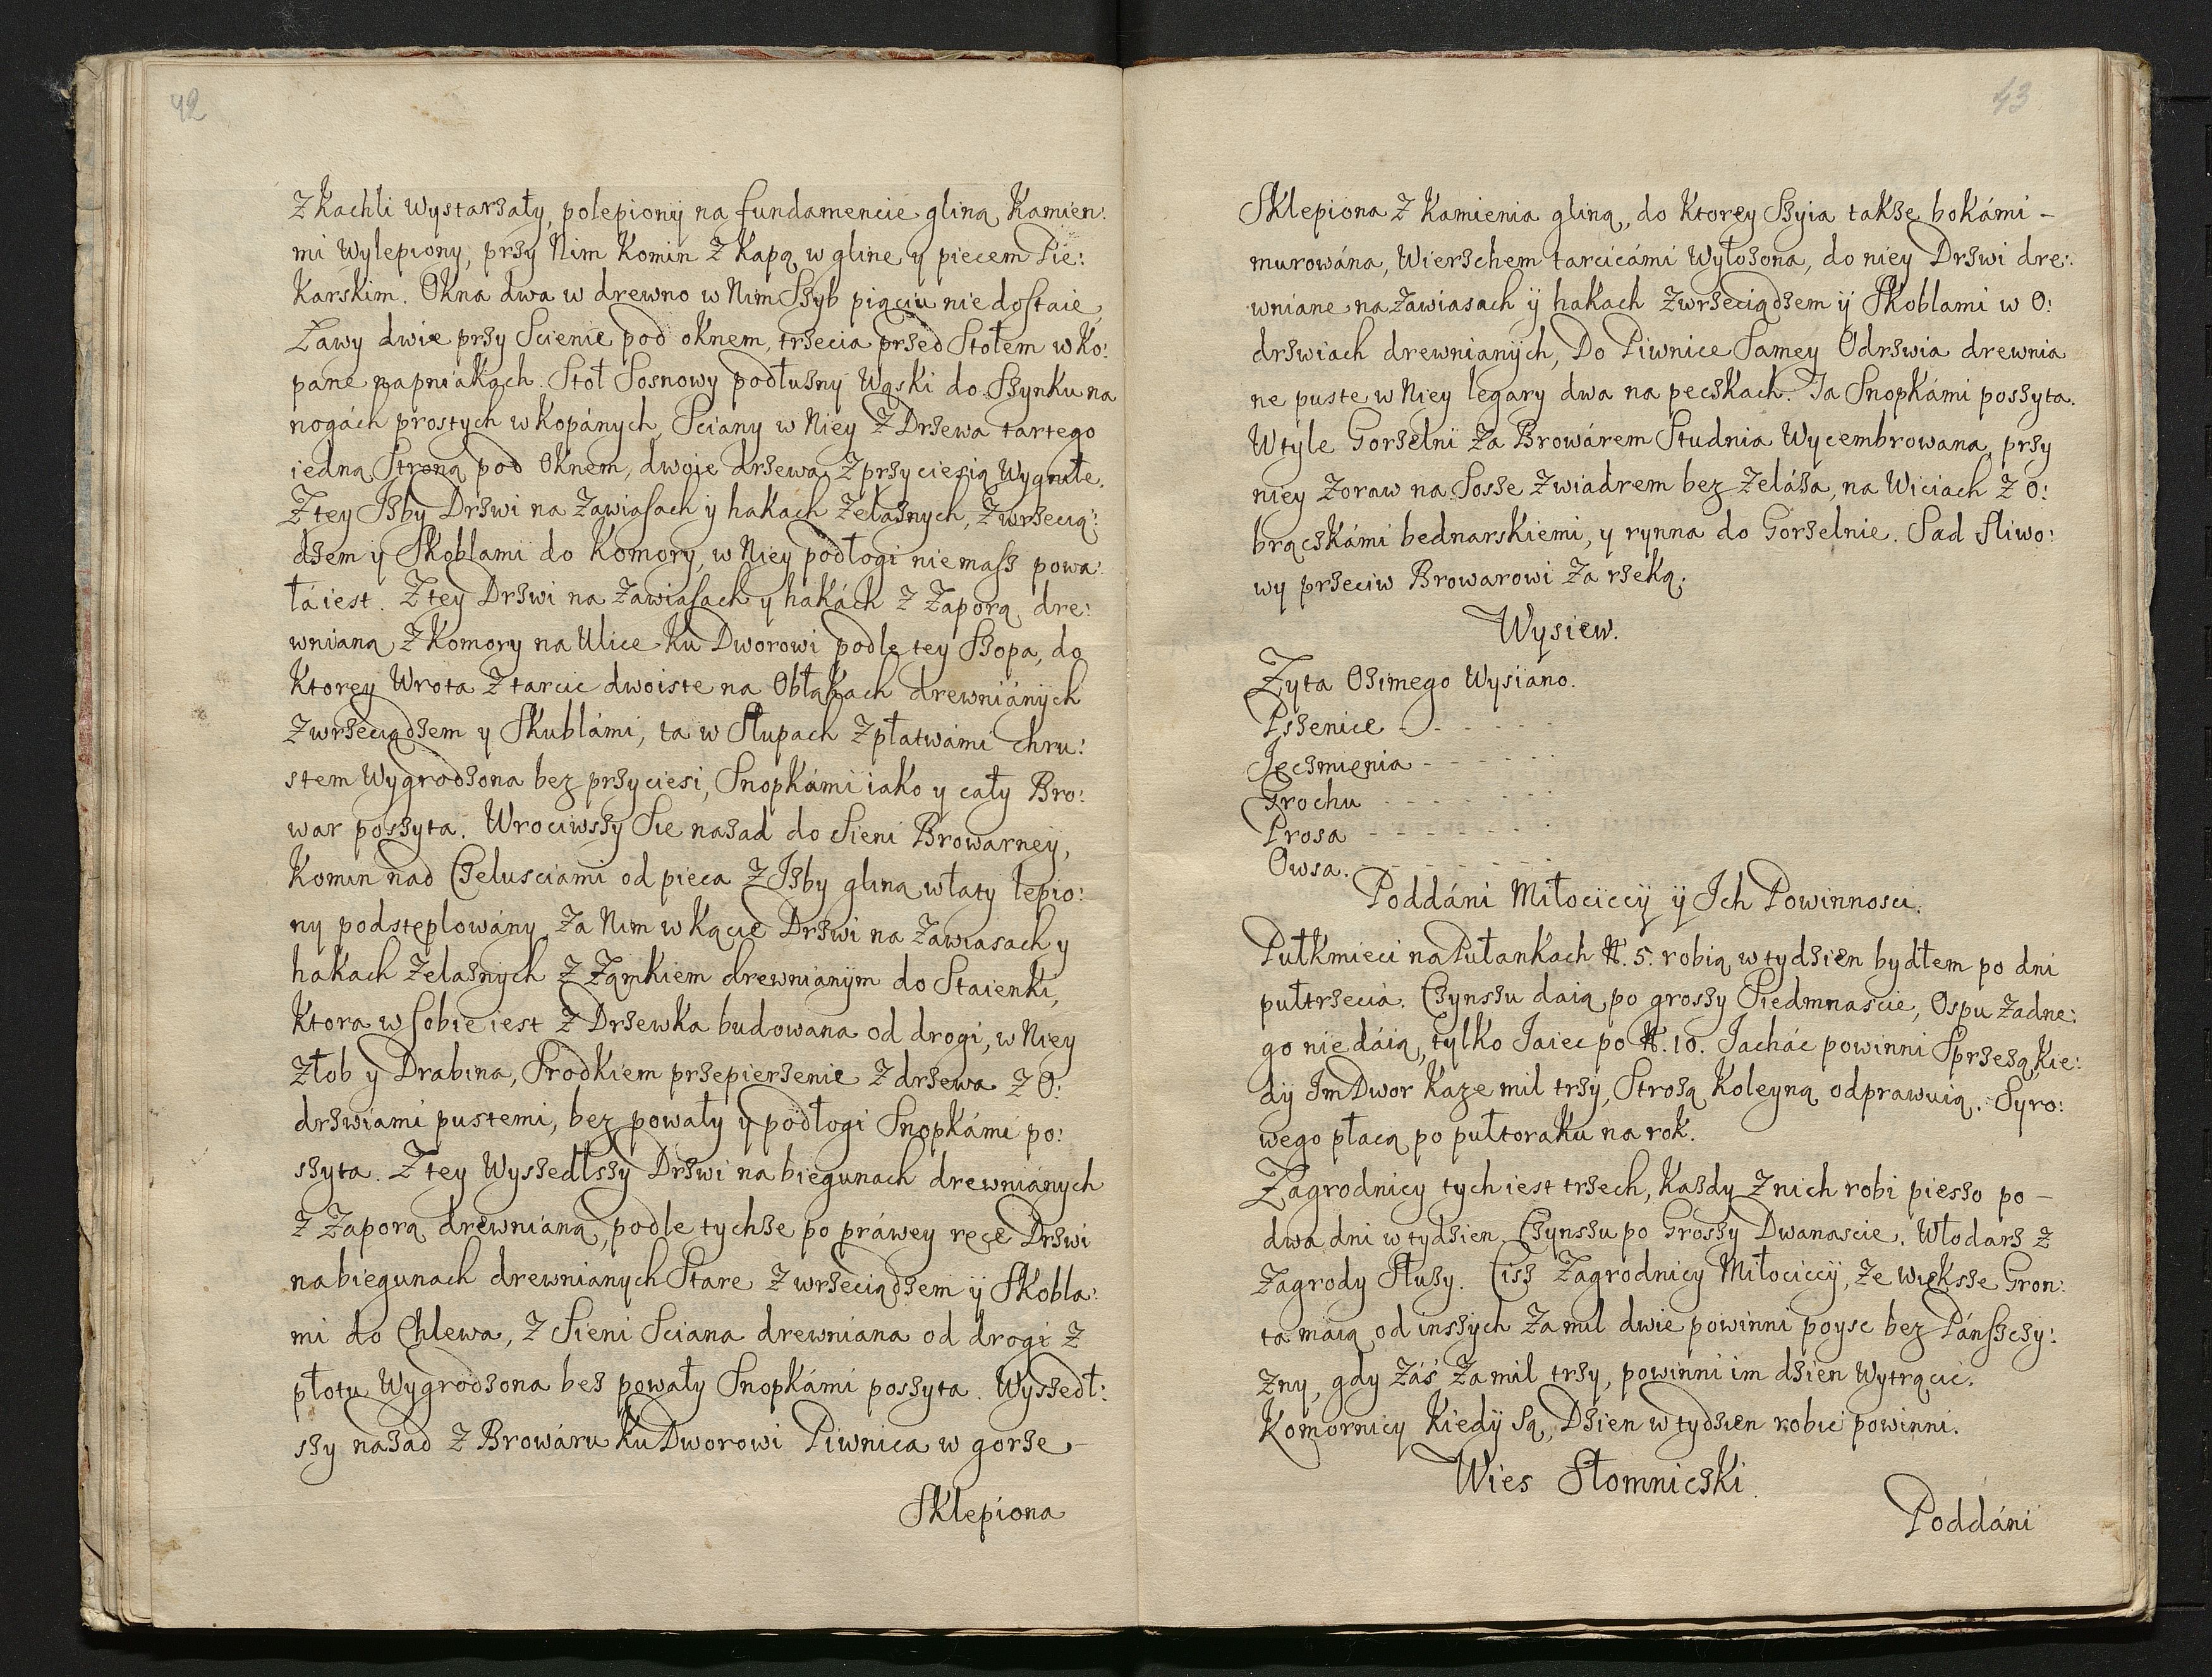 42
Z kachli Wystarzały, polepionÿ na fundamencie gliną Kamien:
mi Wylepiony, przy Nim Komin Z Kapą w gline y piecem Pie:
karskim. Okna dwa w drewno w Nim Szyb pięciu nie dostaie,
Ławy dwie przy Scienie pod oknem, trzecia przed Stołem wko:
pane na pniakach. Stoł Sosnowy podłużny Wąski do Szynku na
nogách prostych wkopánych, Sciany w Niey Z Drzewa tartego
iedną Stroną pod Oknem, dwoie drzewa, Z przyciesią Wygniłe.
Z tey Izby Drzwi na Zawiasach y hakach Zelaznych, Z wrzecią:
dzem y Skoblami do Komory, w Niey podłogi niemasz powa:
łá iest. Z tey Drzwi na Zawiasach y hákách Z Zaporą dre:
wnianą Z Komory na Ulice ku Dworowi podle tey Szopa, do
Ktorey Wrota Z tarcic dwoiste na Obłąkach drewniánych
Z wrzeciądzem y Skublámi, ta w Słupach Z płatwámi chru:
stem Wygrodzona bez przyciesi, Snopkámi iako y cały Bro:
war poszyta. Wrociwszy Sie nazad do Sieni Browarneÿ,
Komin nad Czelusciami od pieca Z Izby gliną w łaty lepio:
ny podsteplowány, Za Nim w kącie Drzwi na Zawiasach y
hakach Zelaznych Z Zamkiem drewnianÿm do Staienki,
Ktora w sobie iest Z Drzewka budowana od drogi, w Niey
Złob y Drabina, Srodkiem przepierzenie Z drzewa Z O:
drzwiami pustemi, bez powały y podłogi Snopkámi po:
szyta. Z tey Wyszedłszy Drzwi na biegunach drewniánych
Z Zaporą drewnianą, podle tychze po práwey ręce Drzwi
na biegunach drewnianych Stare Z wrzeciądzem ÿ Skobla:
mi do Chlewa, Z Sieni Sciana drewniana od drogi Z
płotu Wygrodzona bez powały Snopkámi poszyta. Wyszedł:
szy nazad Z Browáru ku Dworowi Piwnica w gorze –
Sklepiona
43
Sklepiona Z Kamienia gliną, do Ktorey Szyia takze bokámi –
murowána, Wierzchem tarcicámi Wyłozona, do niey Drzwi dre:
wniane na Zawiasach ÿ hakach Z wrzeciądzem ÿ Skoblami w O:
drzwiach drewnianÿch, Do Piwnice Samey Odrzwia drewnia
ne puste w Niey legary dwa na peczkach. Ta Snopkámi poszyta.
W tÿle Gorzelni Za Browárem Studnia Wycembrowana, przy
niey Zoraw na Sosze Z wiadrem bez Zeláza, na Wiciach Z O:
brączkámi bednarskiemi, y rynna do Gorzelnie. Sad Sliwo:
wy przeciw Browarowi Za rzeką.
Wysiew.
Zyta Ozimego Wysiano.
Pszenice - - - - - -
Jęczmienia - - - - - -
Grochu - - - - - -
Prosa - - - - - -
Owsa. - - - - - -
Poddáni Miłociccÿ ÿ Ich Powinnosci.
Pułkmieci na Pułankach № 5. robią w tydzien bydłem po dni
pułtrzeciá. Czynszu daią po groszy Siedmnascie, Ospu Zadne:
go nie dáią, tylko Jaiec po № 10. Jacháć powinni Sprzezą kie:
dÿ Im Dwor kaze mil trzy, Strozą Koleyną odprawuią. Syro:
wego płacą po pułtoraku na rok.
Zagrodnicy tych iest trzech, Kazdy Z nich robi pieszo po –
dwa dni w tydzien. Czynszu po Groszy Dwanascie. Włodarz Z
Zagrody Słuzy. Cisz Zagrodnicy Miłociccÿ, Ze większe Gron:
ta máią od inszych Za mil dwie powinni poyśc bez Pánszczy:
Zny, gdy Záś Za mil trzy, powinni im dzien Wytrącić.
Komornicy Kiedÿ są, Dzien w tydzien robić powinni.
Wies Słomniczki.
Poddáni